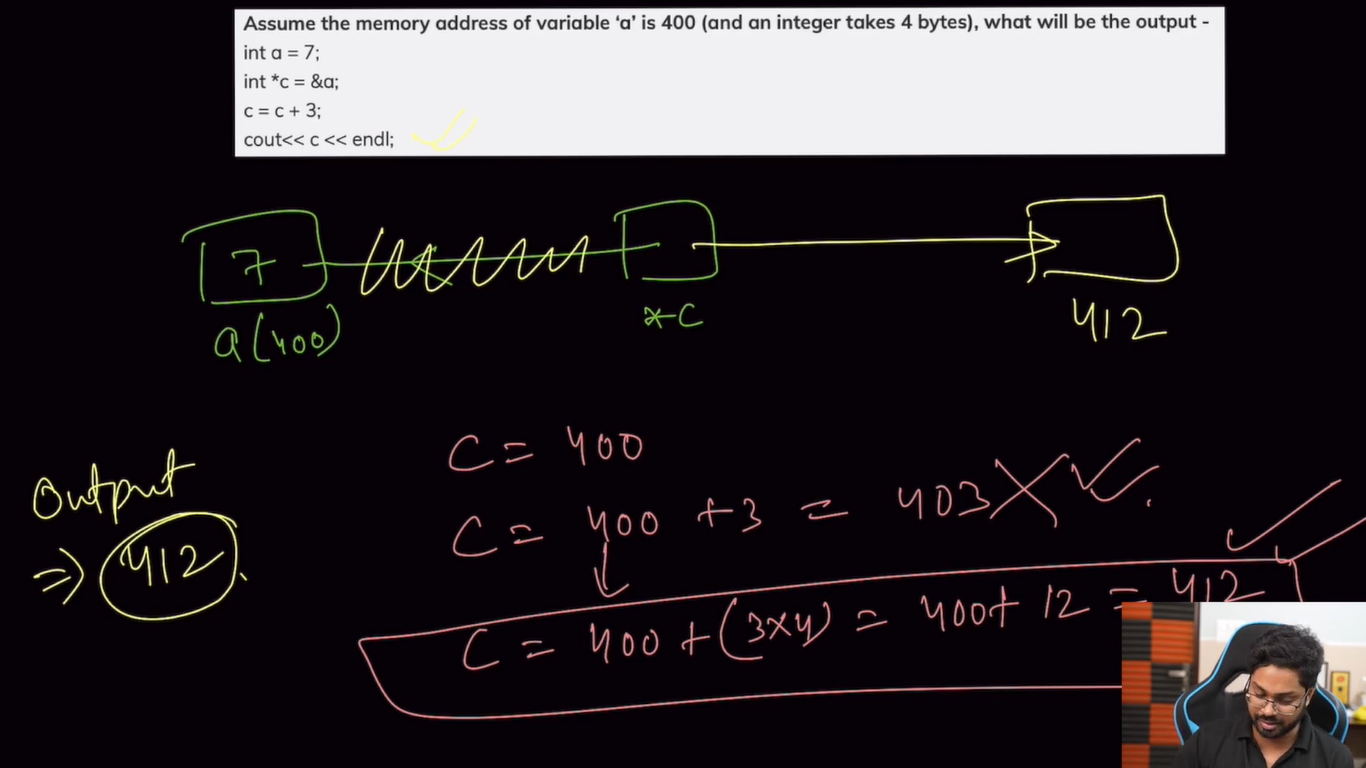 Assume the memory address of variable ‘a’ is 400 (and an integer takes 4 bytes), what will be the output -
int a = 7;
int *c = &a;
c = c + 3;
cout<< c << endl;
7
a (400)
*c
412
Output
⇒ 412
C = 400
C = 400 + 3 = 403
C = 400 + (3x4) = 400 + 12 = 412